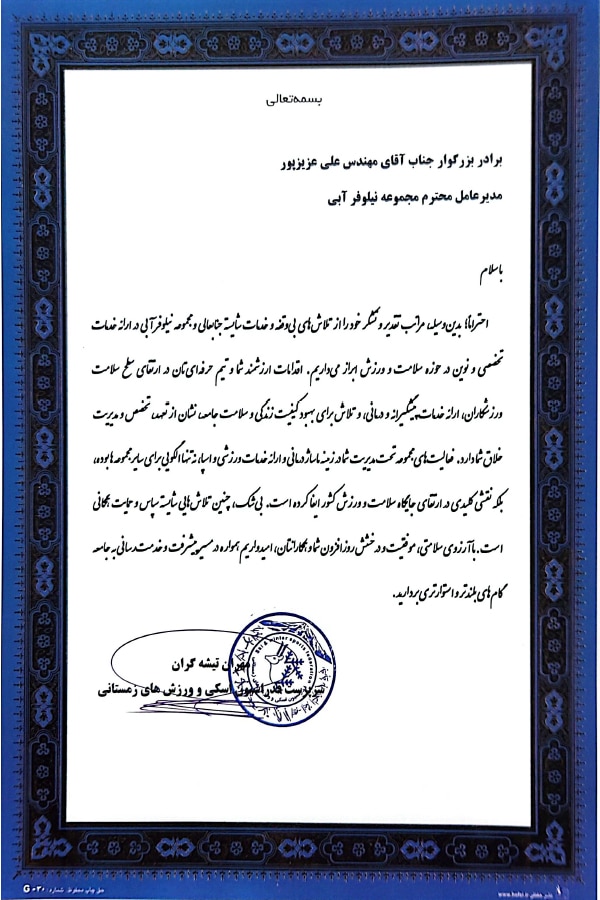 بسمه‌تعالی
برادر بزرگوار جناب آقای مهندس علی عزیزپور
مدیرعامل محترم مجموعه نیلوفر آبی
باسلام
احتراماً؛ بدین‌وسیله، مراتب تقدیر و تشکر خود را از تلاش‌های بی‌وقفه و خدمات شایسته جنابعالی و مجموعه نیلوفر آبی در ارائه خدمات
تخصصی و نوین در حوزه سلامت و ورزش ابراز می‌داریم. اقدامات ارزشمند شما و تیم حرفه‌ای‌تان در ارتقای سطح سلامت
ورزشکاران، ارائه خدمات پیشگیرانه و درمانی، و تلاش برای بهبود کیفیت زندگی و سلامت جامعه، نشان از تعهد، تخصص و مدیریت
خلاق شما دارد. فعالیت‌های مجموعه تحت مدیریت شما در زمینه ماساژ درمانی و ارائه خدمات ورزشی و اسپا، نه تنها الگویی برای سایر مجموعه‌ها بوده،
بلکه نقشی کلیدی در ارتقای جایگاه سلامت و ورزش کشور ایفا کرده است. بی‌شک، چنین تلاش‌هایی شایسته سپاس و حمایت همگانی
است. با آرزوی سلامتی، موفقیت و درخشش روزافزون شما و همکارانتان، امیدواریم همواره در مسیر پیشرفت و خدمت‌رسانی به جامعه
گام‌های بلندتر و استوارتری بردارید.
مهران تیشه گران
سرپرست فدراسیون اسکی و ورزش های زمستانی
Ski & winter sports federation
حق چاپ محفوظ. شماره: G-۰۳۰